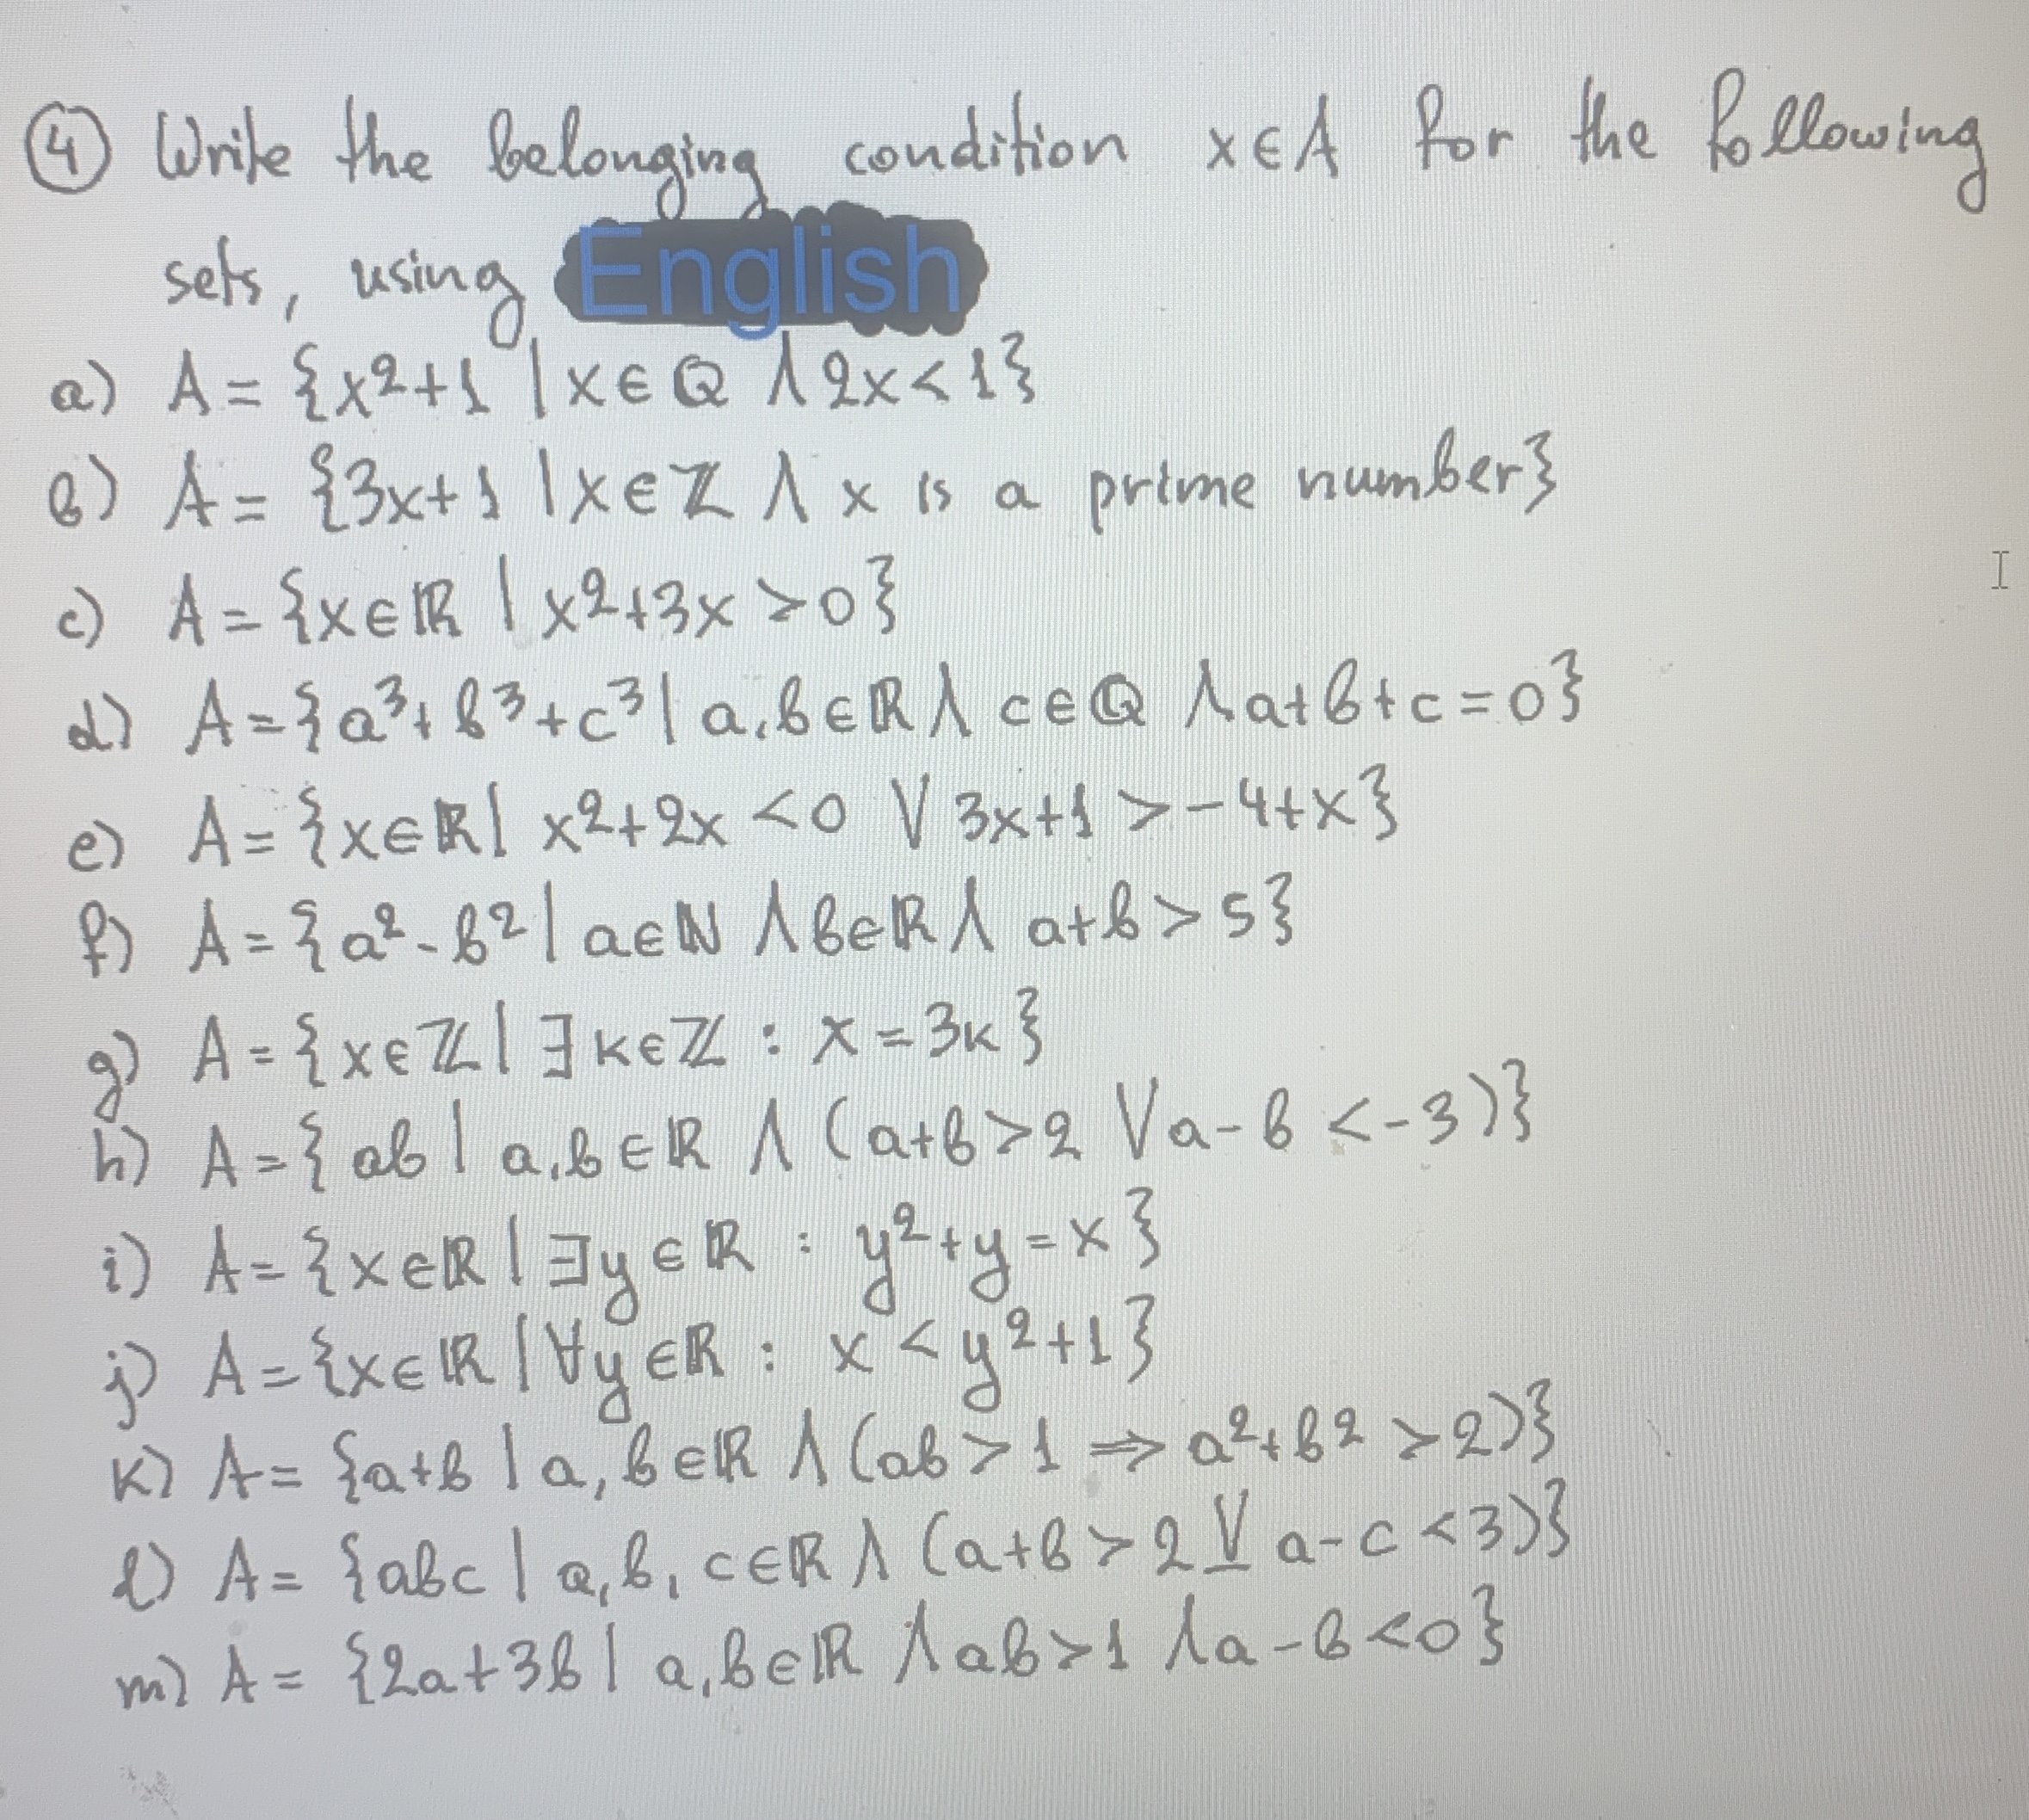 ④ Write the belonging condition x∈A for the following
sets, using English
a) A = {x²+1 | x∈ℚ ∧ 2x<1}
b) A = {3x+1 | x∈ℤ ∧ x is a prime number}
c) A = {x∈ℝ | x²+3x >0}
d) A = {a³+b³+c³ | a,b∈ℝ ∧ c∈ℚ ∧ a+b+c=0}
e) A = {x∈ℝ | x²+2x <0 ∨ 3x+1 >-4+x}
f) A = {a²-b² | a∈ℕ ∧ b∈ℝ ∧ a+b > 5}
g) A = {x∈ℤ | ∃k∈ℤ : x = 3k}
h) A = {ab | a,b∈ℝ ∧ (a+b>2 ∨ a-b <-3)}
i) A = {x∈ℝ | ∃y∈ℝ : y²+y=x}
j) A = {x∈ℝ | ∀y∈ℝ : x < y²+1}
k) A = {a+b | a,b∈ℝ ∧ (ab>1 ⟹ a²+b² >2)}
l) A = {abc | a,b,c∈ℝ ∧ (a+b>2 ⊻ a-c <3)}
m) A = {2a+3b | a,b∈ℝ ∧ ab>1 ∧ a-b<0}